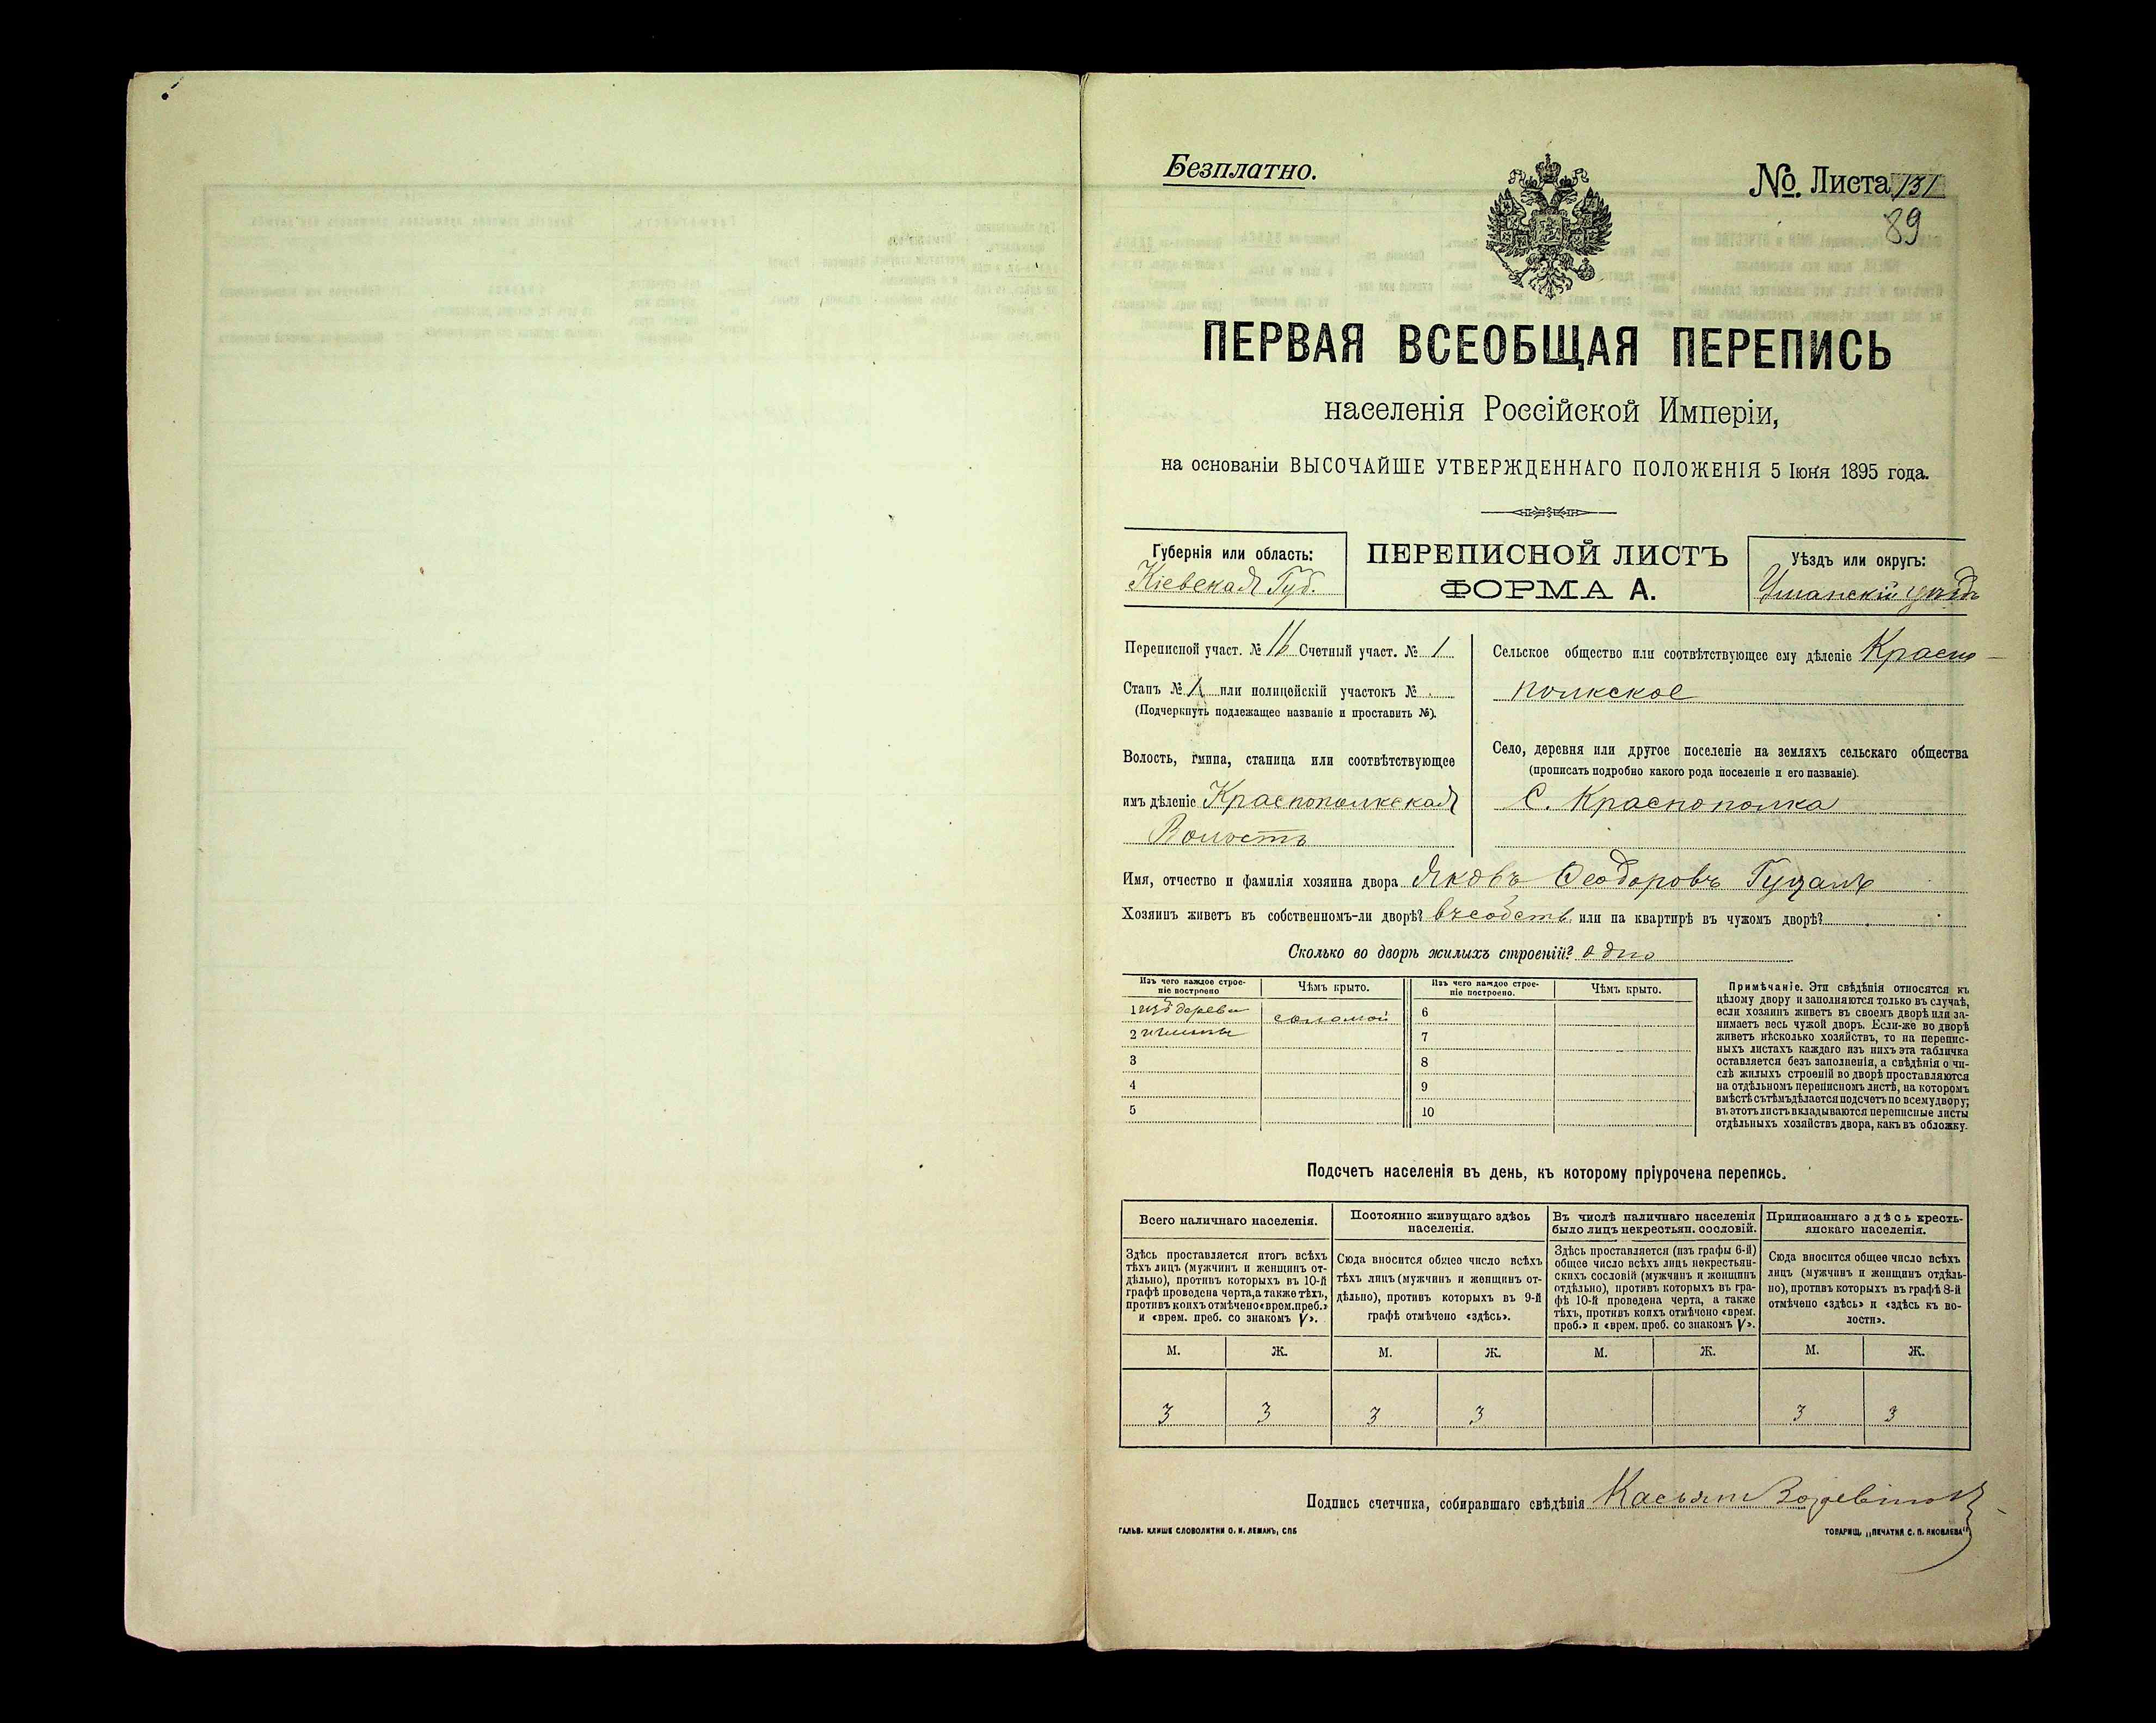 Безплатно.
№. Листа 131
89
ПЕРВАЯ ВСЕОБЩАЯ ПЕРЕПИСЬ
населенія Россійской Имперіи,
на основаніи ВЫСОЧАЙШЕ УТВЕРЖДЕННАГО ПОЛОЖЕНІЯ 5 Іюня 1895 года.
Губернія или область:
Кіевская Губ.
ПЕРЕПИСНОЙ ЛИСТЪ
ФОРМА А.
Уѣздъ или округъ:
Уманскій уѣздъ
Переписной участ. № 16 Счетный участ. № 1
Станъ № 1 или полицейскій участокъ №
(Подчеркнуть подлежащее названіе и проставить №).
Волость, гмина, станица или соотвѣтствующее
имъ дѣленіе Краснополкская
Волость
Сельское общество или соотвѣтствующее ему дѣленіе Красно-
полкское
Село, деревня или другое поселеніе на земляхъ сельскаго общества
(прописать подробно какого рода поселеніе и его названіе).
С. Краснополка
Имя, отчество и фамилія хозяина двора Яковъ Ѳеодоровъ
Хозяинъ живетъ въ собственномъ-ли дворѣ? въ собств. или на квартирѣ въ чужомъ дворѣ?
Сколько во дворѣ жилыхъ строеній? одно
Изъ чего каждое строе-
ніе построено
Чѣмъ крыто.
Изъ чего каждое строе-
ніе построено.
Чѣмъ крыто.
1 изъ дерева
соломой
2 и глины
3
4
5
6
7
8
9
10
Примѣчаніе. Эти свѣдѣнія относятся къ
цѣлому двору и заполняются только въ случаѣ,
если хозяинъ живетъ въ своемъ дворѣ или за-
нимаетъ весь чужой дворъ. Если-же во дворѣ
живетъ нѣсколько хозяйствъ, то на перепис-
ныхъ листахъ каждаго изъ нихъ эта табличка
оставляется безъ заполненія, а свѣдѣнія о чи-
слѣ жилыхъ строеній во дворѣ проставляются
на отдѣльномъ переписномъ листѣ, на которомъ
вмѣстѣ съ тѣмъ дѣлается подсчетъ по всему двору;
въ этотъ листъ вкладываются переписные листы
отдѣльныхъ хозяйствъ двора, какъ въ обложку.
Подсчетъ населенія въ день, къ которому пріурочена перепись.
Всего наличнаго населенія.
Здѣсь проставляется итогъ всѣхъ
тѣхъ лицъ (мужчинъ и женщинъ от-
дѣльно), противъ которыхъ въ 10-й
графѣ проведена черта, а также тѣхъ,
противъ коихъ отмѣчено «врем. преб.»
и «врем. преб. со знакомъ V».
Постоянно живущаго здѣсь
населенія.
Сюда вносится общее число всѣхъ
тѣхъ лицъ (мужчинъ и женщинъ от-
дѣльно), противъ которыхъ въ 9-й
графѣ отмѣчено «здѣсь».
Въ числѣ наличнаго населенія
было лицъ некрестьян. сословій.
Здѣсь проставляется (изъ графы 6-й)
общее число всѣхъ лицъ некрестьян-
скихъ сословій (мужчинъ и женщинъ
отдѣльно), противъ которыхъ въ гра-
фѣ 10-й проведена черта, а также
тѣхъ, противъ коихъ отмѣчено «врем.
преб.» и «врем. преб. со знакомъ V».
Приписаннаго здѣсь кресть-
янскаго населенія.
Сюда вносится общее число всѣхъ
лицъ (мужчинъ и женщинъ отдѣль-
но), противъ которыхъ въ графѣ 8-й
отмѣчено «здѣсь» и «здѣсь къ во-
лости».
М. Ж. М. Ж. М. Ж. М. Ж.
3 3 3 3 3 3
Подпись счетчика, собиравшаго свѣдѣнія Касьян
ГАЛЬВ. КЛИШЕ СЛОВОЛИТНИ О. И. ЛЕМАНЪ, СПБ
ТОВАРИЩ. „ПЕЧАТНЯ С. П. ЯКОВЛЕВА"